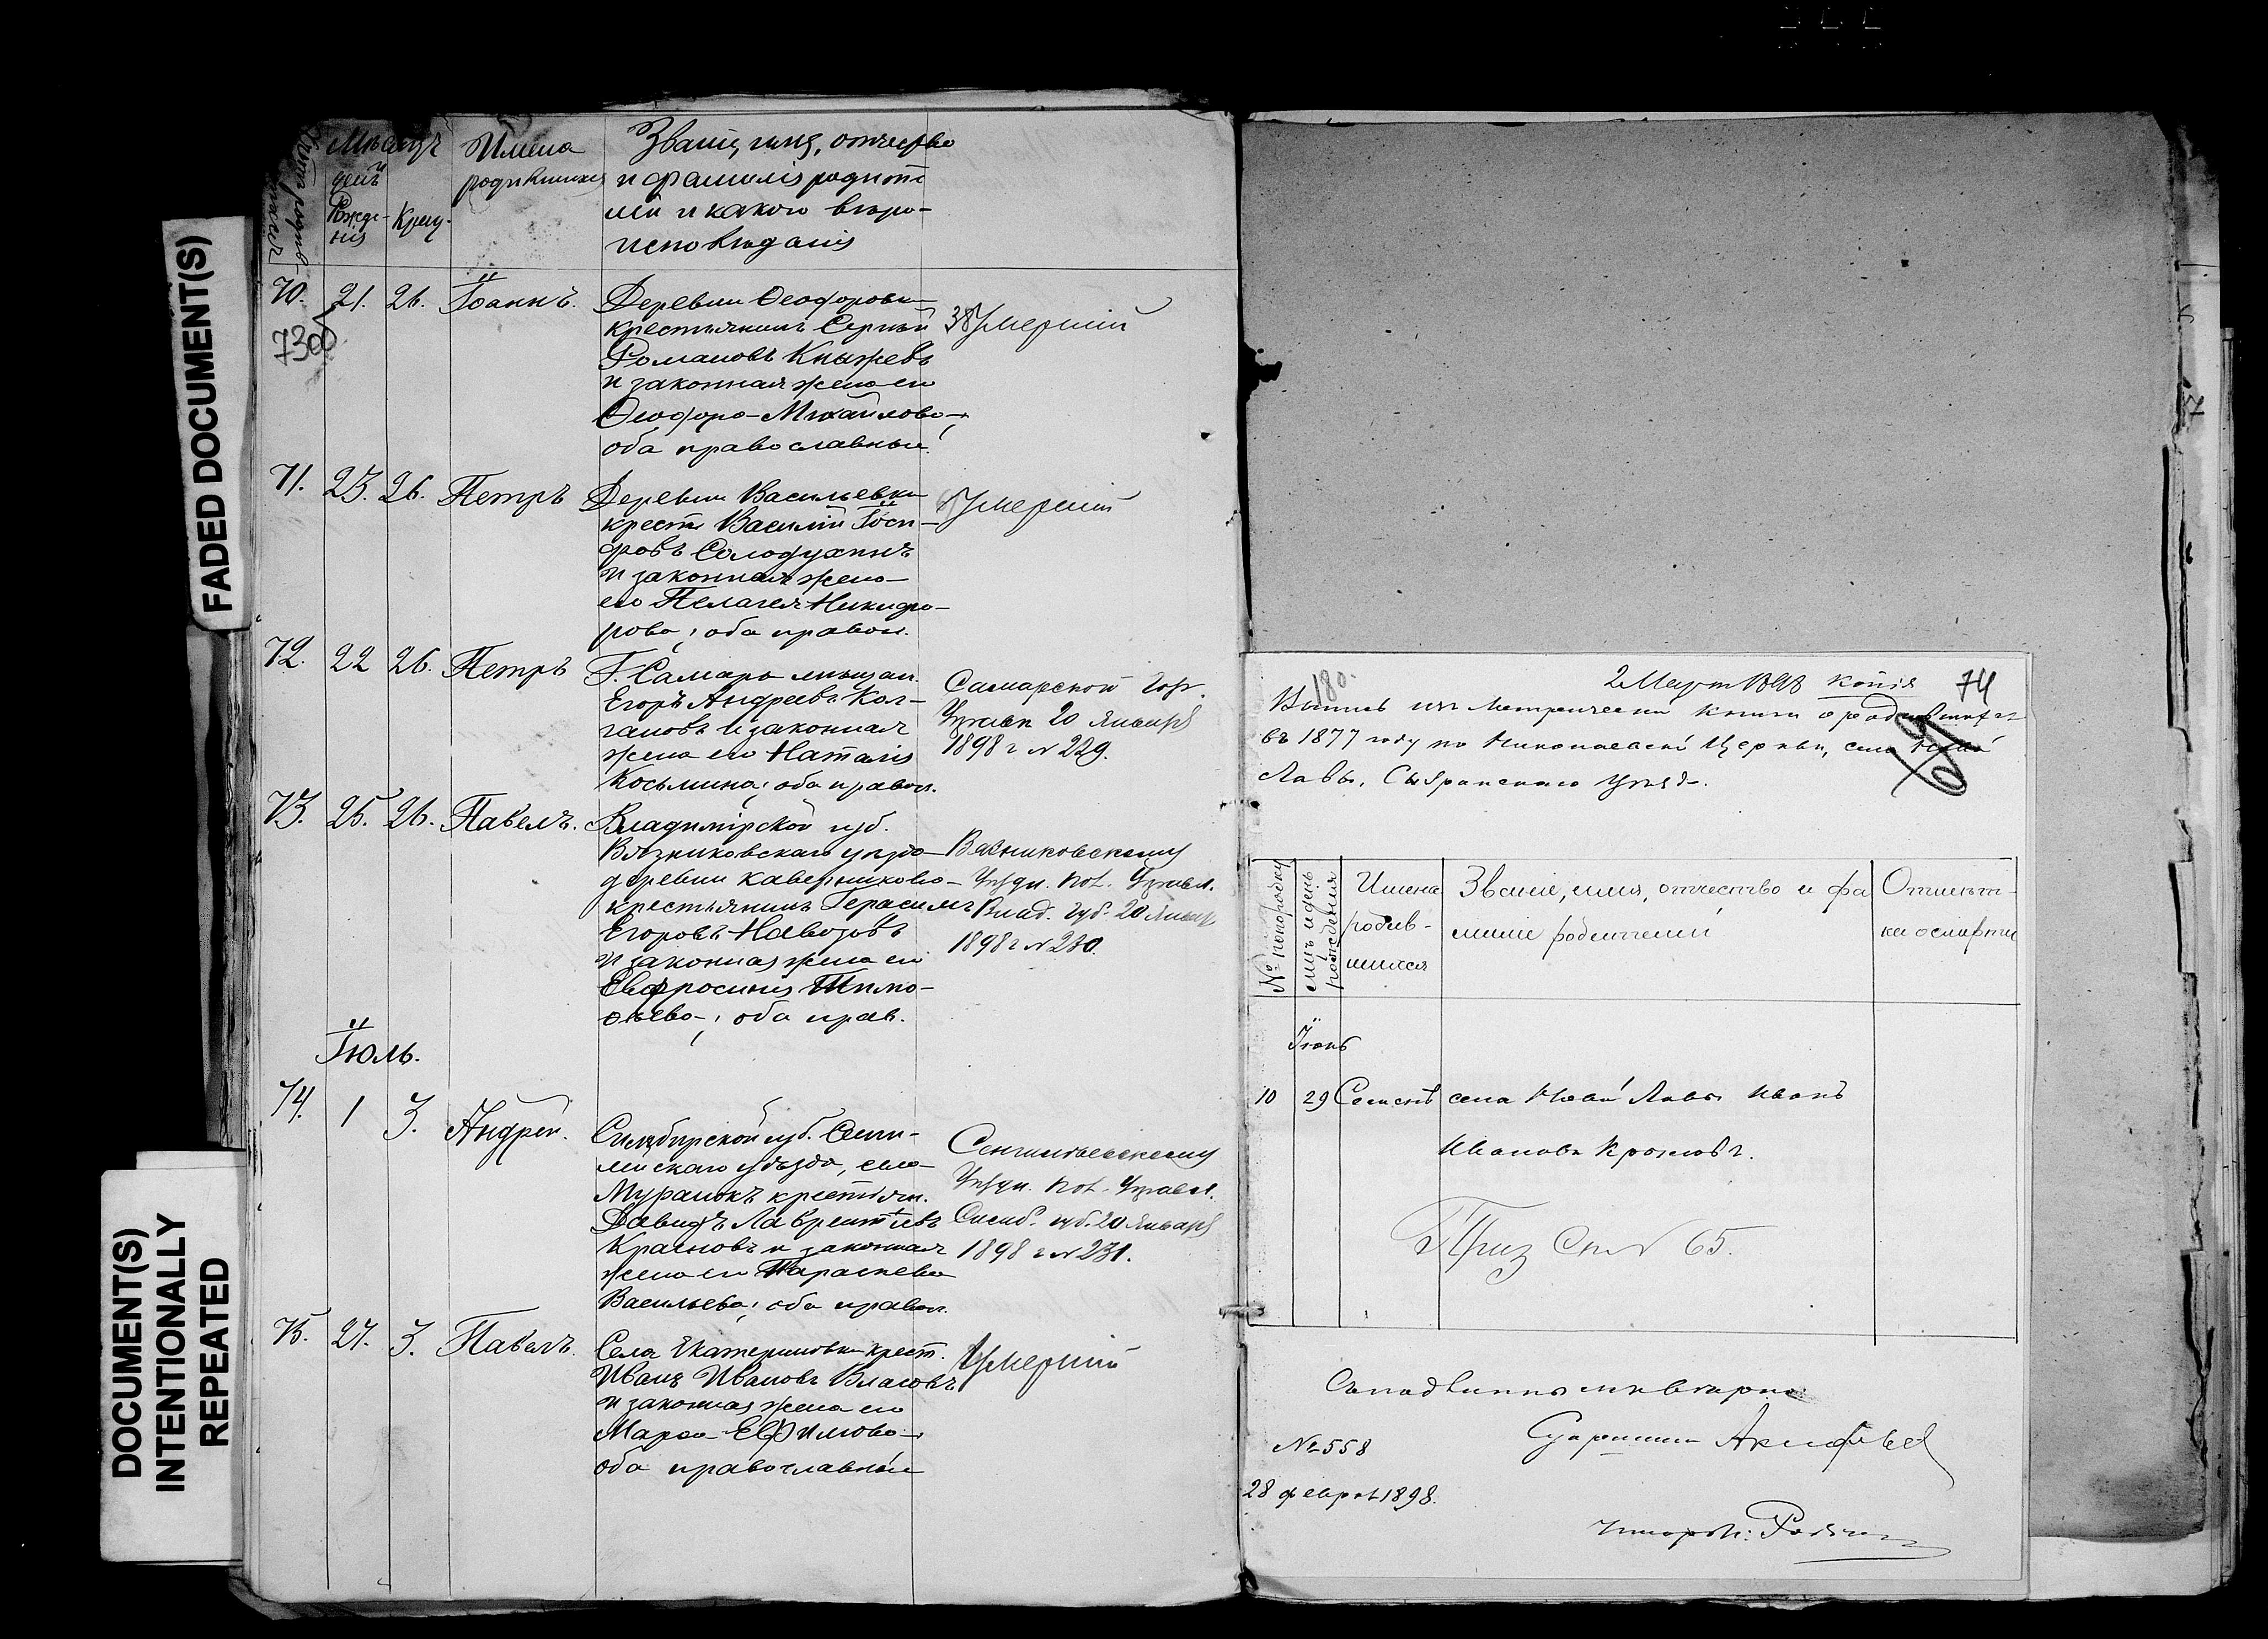 FADED DOCUMENT(S)
DOCUMENT(S)
INTENTIONALLY
REPEATED
Мѣсяцъ
и
день
Рожде-
нія
Крещ.
Имена
родившихся
Званіе, имя, отчество
и фамилія родите
лей и какого вѣро-
исповѣданія
70. 21. 26. Іоаннъ.
7300
Деревни Ѳеодоровки
крестьянинъ Сергѣй
Романовъ Князевъ
и законная жена его
Ѳеодора Михайлова
оба православные.
38 Умершій
71. 23. 26. Петръ
Деревни Васильевки
крест. Василій Іоси-
фовъ Солодухинъ
и законная жена
его Пелагея Никифо-
рова; оба правос.
Умершій
72. 22 26. Петръ
Г. Самара мѣщан.
Егоръ Андреевъ Кол-
гановъ и законная
жена его Наталія
Косьмина; оба правос.
Самарской Гор.
Управѣ 20 Января
1898 г № 229.
73. 25. 26. Павелъ.
Владимірской губ.
Вязниковскаго уѣзда
деревни
крестьянинъ Герасимъ
Егоровъ Навозовъ
и законная жена его
Евфросинія Тимо-
ѳѣева; оба прав.
Вязниковскому
Уѣздн. Пол. Управл.
Влад. губ. 20 Января
1898 г № 230.
Іюль.
74. 1 3. Андрей.
Симбирской губ. Сенги-
лейскаго уѣзда, села
Муранокъ крестьян.
Давидъ Лаврентіевъ
Красновъ и законная
жена его Параскева
Васильева; оба правос.
Сенгилеевскому
Уѣздн. Пол. Управл.
Симб. губ. 20 Января
1898 г № 231.
75. 27. 3. Павелъ.
Села Екатериновки крест.
Иванъ Ивановъ Власовъ
и законная жена его
Марѳа Ефимова
оба православные
Умершій
180.
2 Март 1898 копія 74
Выпись изъ Метрической книги о родившихся
въ 1877 году по Николаевской Церкви, села Новой
Лавы, Сызранскаго Уѣзда.
№ попорядку
мѣс. и день
рожденія
Имена
родив-
шихся
Званіе, имя, отчество и фа
миліи родителей
Отмѣт-
ка о смерти
Іюнь
10 29 Семенъ села Новой Лавы Иванъ
Ивановъ
Приз Сп № 65.
Съ подлиннымъ вѣрно:
Старшина
№ 558
28 феврал 1898.